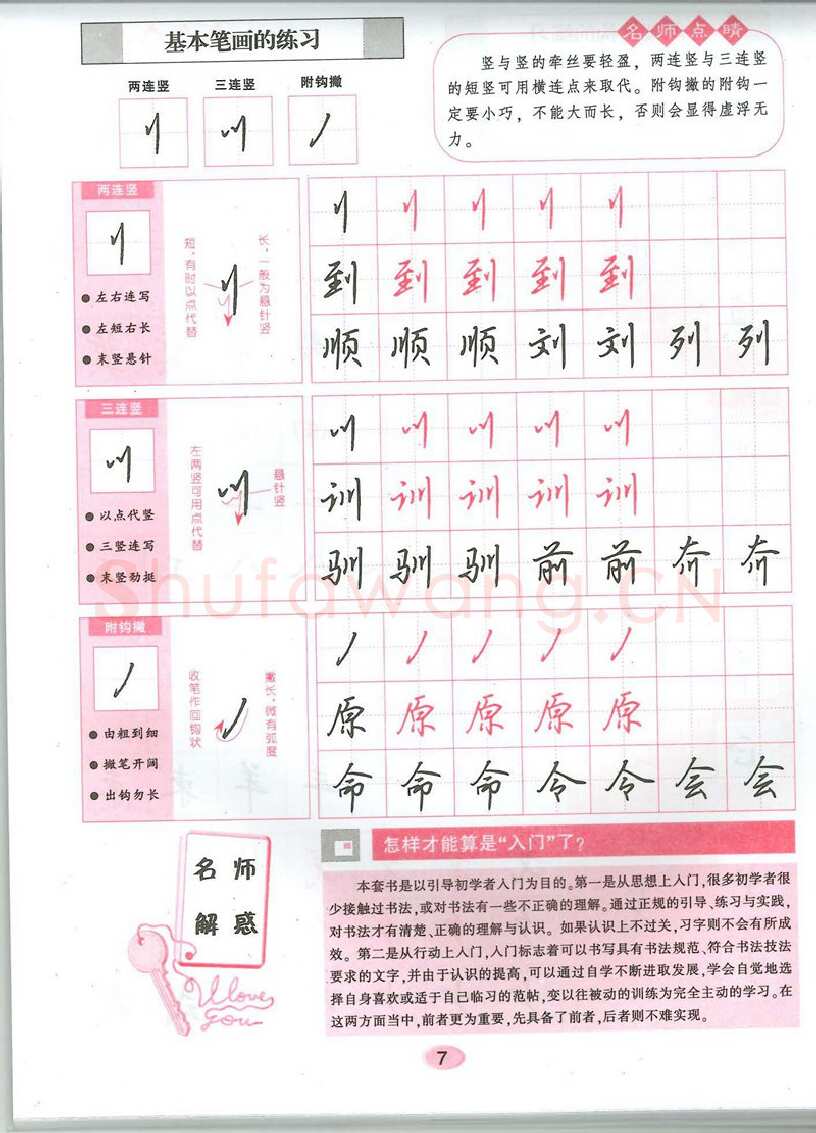 基本笔画的练习
两连竖 三连竖 附钩撇
名师点睛
竖与竖的牵丝要轻盈，两连竖与三连竖
的短竖可用横连点来取代。附钩撇的附钩一
定要小巧，不能大而长，否则会显得虚浮无
力。
两连竖
左右连写
左短右长
末竖悬针
短，有时以点代替
长，一般为悬针竖
到 到 到 到 到
顺 顺 顺 刘 刘 列 列
三连竖
以点代竖
三竖连写
末竖劲挺
左两竖可用点代替
悬针竖
训 训 训 训 训
驯 驯 驯 前 前 夼 夼
附钩撇
由粗到细
撇笔开阔
出钩勿长
收笔作回钩状
撇长，微有弧度
原 原 原 原 原
命 命 命 令 令 会 会
Shufawang.CN
名师
解惑
I love
you
怎样才能算是“入门”了？
本套书是以引导初学者入门为目的。第一是从思想上入门，很多初学者很
少接触过书法，或对书法有一些不正确的理解。通过正规的引导、练习与实践，
对书法才有清楚、正确的理解与认识。如果认识上不过关，习字则不会有所成
效。第二是从行动上入门，入门标志着可以书写具有书法规范、符合书法技法
要求的文字，并由于认识的提高，可以通过自学不断进取发展，学会自觉地选
择自身喜欢或适于自己临习的范帖，变以往被动的训练为完全主动的学习。在
这两方面当中，前者更为重要，先具备了前者，后者则不难实现。
7